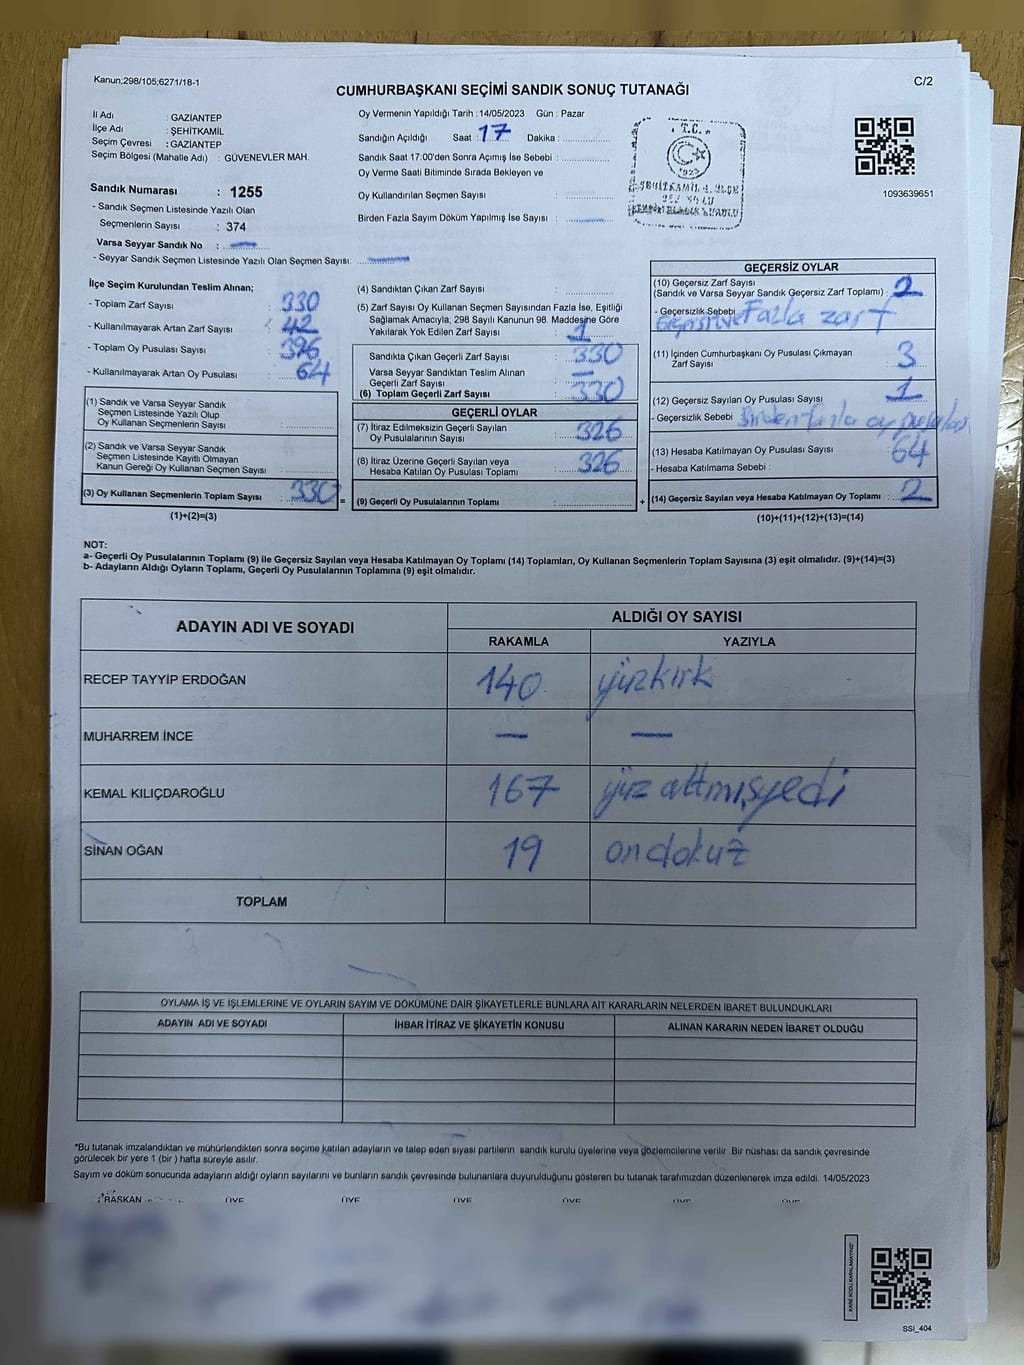 Kanun;298/105;6271/18-1
C/2
CUMHURBAŞKANI SEÇİMİ SANDIK SONUÇ TUTANAĞI
İl Adı : GAZİANTEP
İlçe Adı : ŞEHİTKAMİL
Seçim Çevresi : GAZİANTEP
Seçim Bölgesi (Mahalle Adı) : GÜVENEVLER MAH.
Sandık Numarası : 1255
- Sandık Seçmen Listesinde Yazılı Olan
Seçmenlerin Sayısı : 374
Varsa Seyyar Sandık No : —
- Seyyar Sandık Seçmen Listesinde Yazılı Olan Seçmen Sayısı: —
Oy Vermenin Yapıldığı Tarih : 14/05/2023 Gün : Pazar
Sandığın Açıldığı Saat : 17 Dakika :
Sandık Saat 17:00'den Sonra Açımış İse Sebebi :
Oy Verme Saati Bitiminde Sırada Bekleyen ve
Oy Kullandırılan Seçmen Sayısı :
Birden Fazla Sayım Döküm Yapılmış İse Sayısı : —
T.C.
1923
ŞEHİTKAMİL 4. İLÇE
1093639651
İlçe Seçim Kurulundan Teslim Alınan;
- Toplam Zarf Sayısı : 330
- Kullanılmayarak Artan Zarf Sayısı : 42
- Toplam Oy Pusulası Sayısı : 396
- Kullanılmayarak Artan Oy Pusulası : 64
(1) Sandık ve Varsa Seyyar Sandık
Seçmen Listesinde Yazılı Olup
Oy Kullanan Seçmenlerin Sayısı :
(2) Sandık ve Varsa Seyyar Sandık
Seçmen Listesinde Kayıtlı Olmayan
Kanun Gereği Oy Kullanan Seçmen Sayısı :
(3) Oy Kullanan Seçmenlerin Toplam Sayısı : 330 =
(1)+(2)=(3)
(4) Sandıktan Çıkan Zarf Sayısı :
(5) Zarf Sayısı Oy Kullanan Seçmen Sayısından Fazla İse, Eşitliği
Sağlamak Amacıyla, 298 Sayılı Kanunun 98. Maddesine Göre
Yakılarak Yok Edilen Zarf Sayısı : 1
Sandıkta Çıkan Geçerli Zarf Sayısı : 330
Varsa Seyyar Sandıktan Teslim Alınan
Geçerli Zarf Sayısı : —
(6) Toplam Geçerli Zarf Sayısı : 330
GEÇERLİ OYLAR
(7) İtiraz Edilmeksizin Geçerli Sayılan
Oy Pusulalarının Sayısı : 326
(8) İtiraz Üzerine Geçerli Sayılan veya
Hesaba Katılan Oy Pusulası Toplamı : 326
(9) Geçerli Oy Pusulalarının Toplamı : +
GEÇERSİZ OYLAR
(10) Geçersiz Zarf Sayısı
(Sandık ve Varsa Seyyar Sandık Geçersiz Zarf Toplamı) : 2
- Geçersizlik Sebebi : Fazla zarf
(11) İçinden Cumhurbaşkanı Oy Pusulası Çıkmayan
Zarf Sayısı : 3
(12) Geçersiz Sayılan Oy Pusulası Sayısı : 1
- Geçersizlik Sebebi : Birden fazla oy pusulası
(13) Hesaba Katılmayan Oy Pusulası Sayısı : 64
- Hesaba Katılmama Sebebi :
(14) Geçersiz Sayılan veya Hesaba Katılmayan Oy Toplamı : 2
(10)+(11)+(12)+(13)=(14)
NOT:
a- Geçerli Oy Pusulalarının Toplamı (9) ile Geçersiz Sayılan veya Hesaba Katılmayan Oy Toplamı (14) Toplamları, Oy Kullanan Seçmenlerin Toplam Sayısına (3) eşit olmalıdır. (9)+(14)=(3)
b- Adayların Aldığı Oyların Toplamı, Geçerli Oy Pusulalarının Toplamına (9) eşit olmalıdır.
ADAYIN ADI VE SOYADI
ALDIĞI OY SAYISI
RAKAMLA YAZIYLA
RECEP TAYYİP ERDOĞAN 140 yüzkırk
MUHARREM İNCE — —
KEMAL KILIÇDAROĞLU 167 yüz altmışyedi
SİNAN OĞAN 19 ondokuz
TOPLAM
OYLAMA İŞ VE İŞLEMLERİNE VE OYLARIN SAYIM VE DÖKÜMÜNE DAİR ŞİKAYETLERLE BUNLARA AİT KARARLARIN NELERDEN İBARET BULUNDUKLARI
ADAYIN ADI VE SOYADI İHBAR İTİRAZ VE ŞİKAYETİN KONUSU ALINAN KARARIN NEDEN İBARET OLDUĞU
*Bu tutanak imzalandıktan ve mühürlendikten sonra seçime katılan adayların ve talep eden siyasi partilerin sandık kurulu üyelerine veya gözlemcilerine verilir .Bir nüshası da sandık çevresinde
görülecek bir yere 1 (bir ) hafta süreyle asılır.
Sayım ve döküm sonucunda adayların aldığı oyların sayılarını ve bunların sandık çevresinde bulunanlara duyurulduğunu gösteren bu tutanak tarafımızdan düzenlenerek imza edildi. 14/05/2023
BAŞKAN ÜYE ÜYE ÜYE ÜYE ÜYE ÜYE
KARE KODU KARALAMAYINIZ!
SSI_404